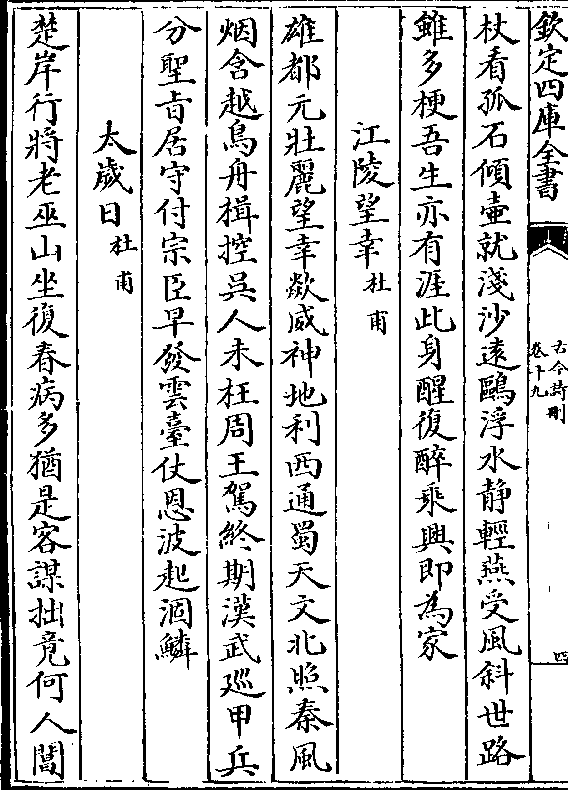 欽定四庫全書
古今詩刪
卷十九
四
杖看孤石傾壺就淺沙遠鷗浮水静輕燕受風斜世路
雖多梗吾生亦有涯此身醒復醉乘興即為家
江陵望幸杜甫
雄都元壯麗望幸歘威神地利西通蜀天文北照秦風
烟含越鳥舟楫控吳人未枉周王駕終期漢武廵甲兵
分聖㫖居守付宗臣早發雲臺仗恩波起涸鱗
太歲日杜甫
楚岸行將老巫山坐復春病多猶是客謀拙竟何人閶